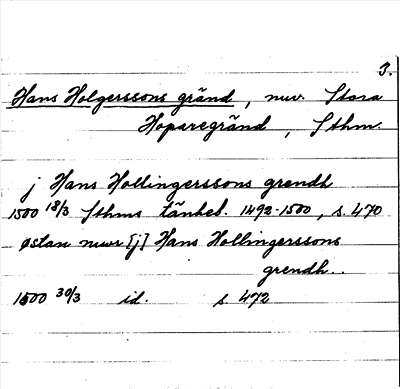 3.
Hans Holgerssons gränd, nuv. Stora
Hoparegränd, Sthm.
j Hans Hollingerssons grendh
1500 18/3 Sthms tänkeb. 1492-1500, s. 470
østan nwr [j] Hans Hollingerssons
grendh..
1500 30/3 id. s. 472